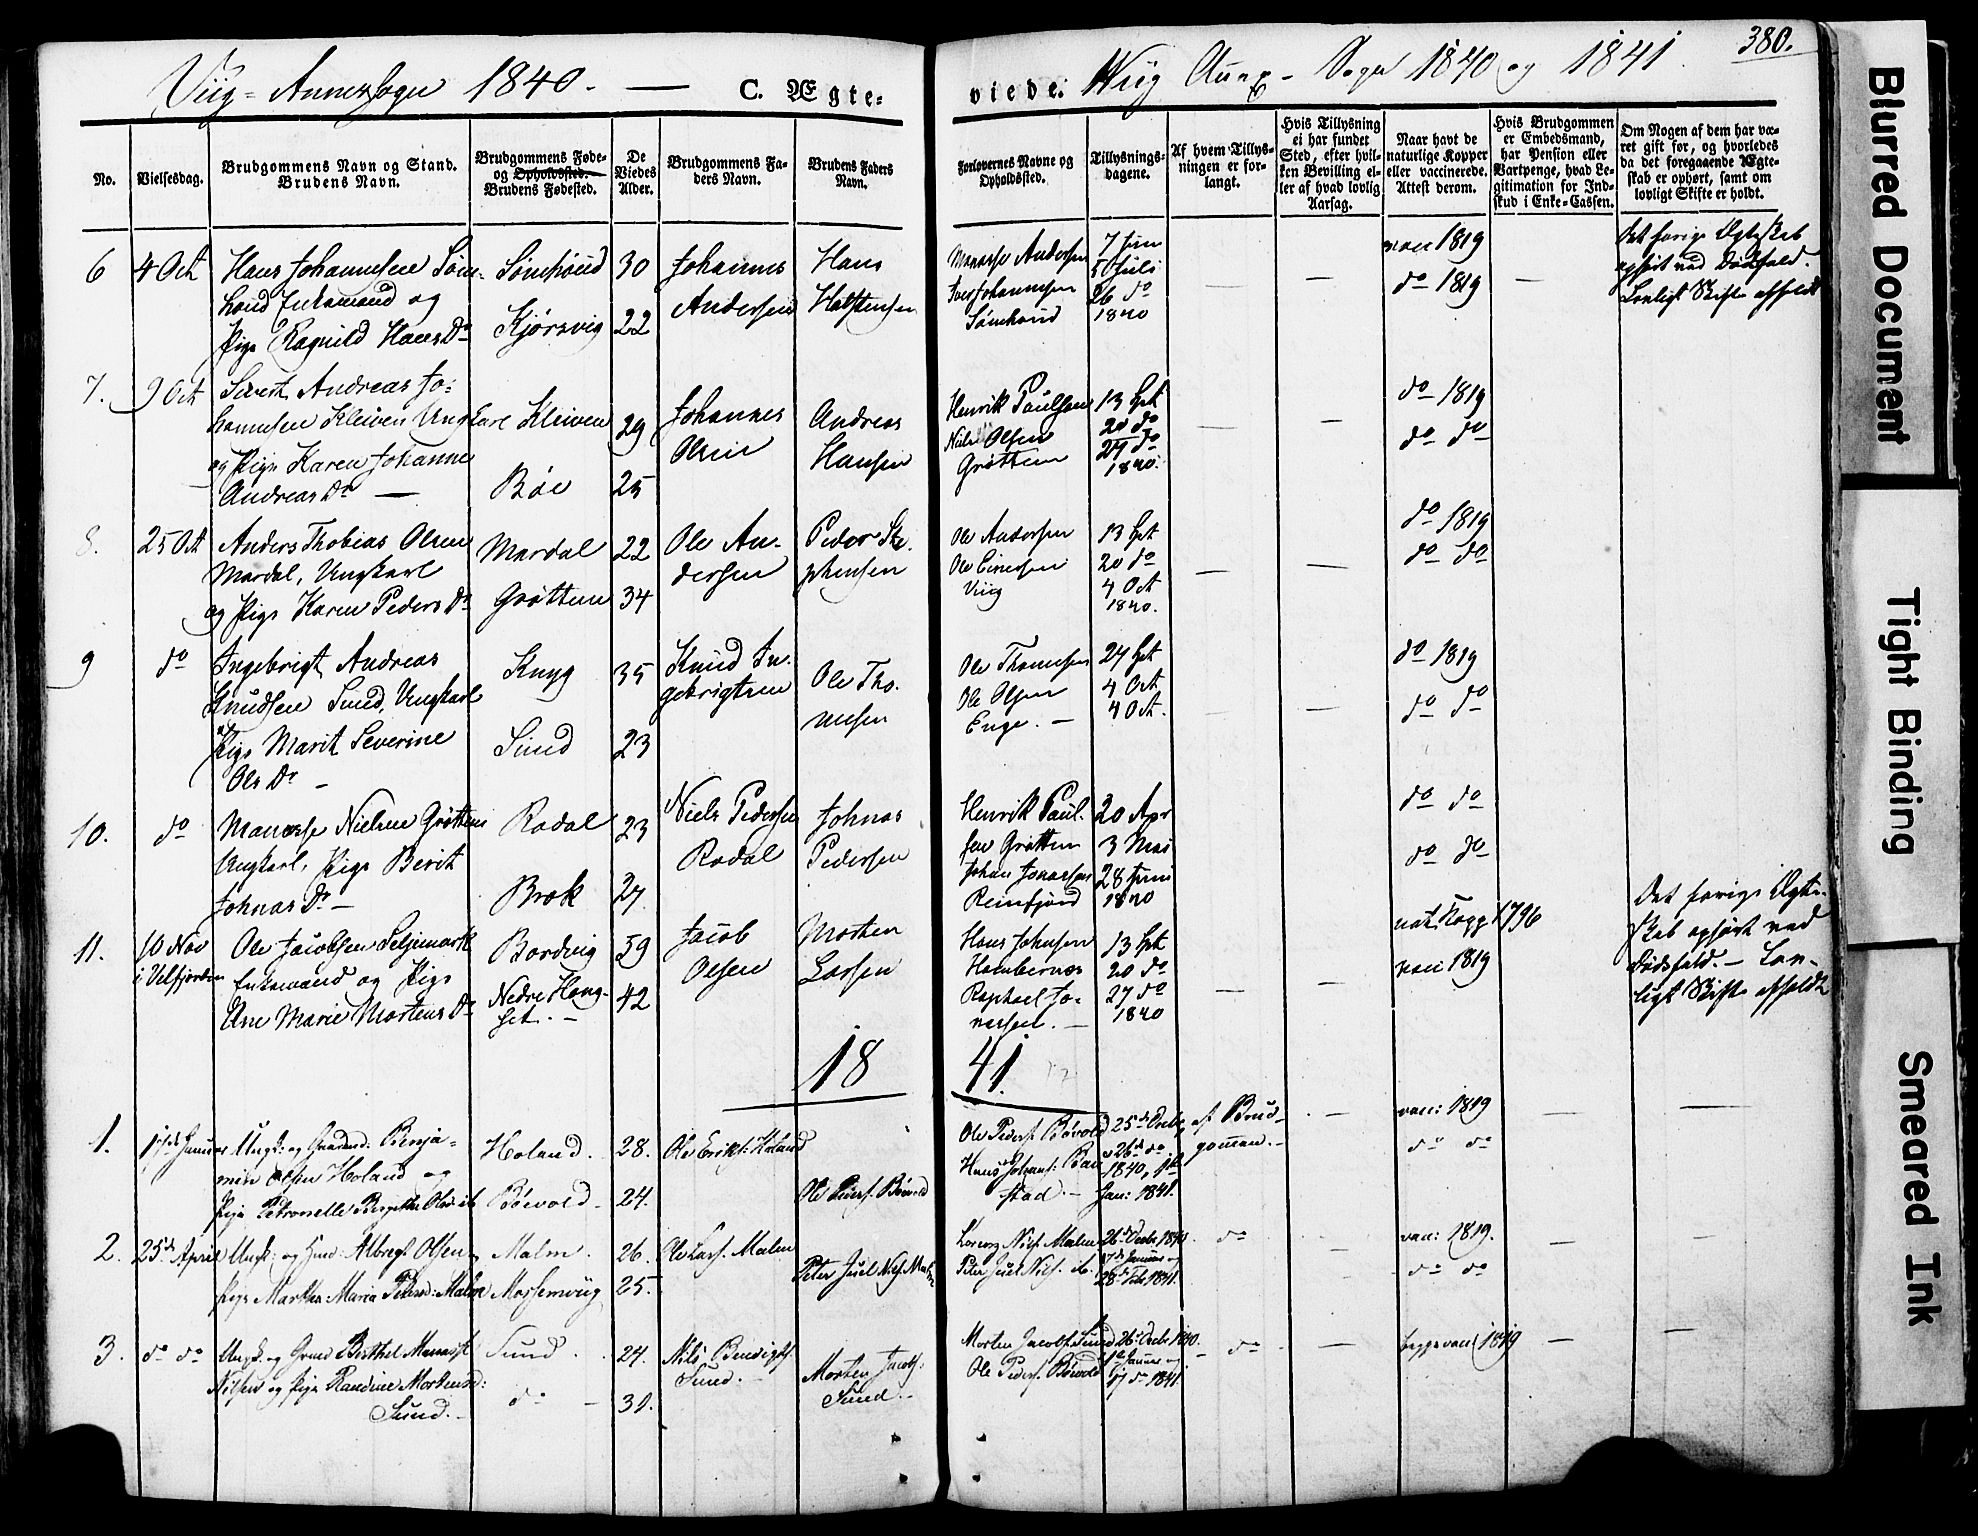 Viig-Annexsogn 1840. — C. Ægte-
viede. Wiig Annex-Sogn 1840 og 1841.
380.
No.
Vielsesdag.
Brudgommens Navn og Stand.
Brudens Navn.
Brudgommens Føde-
og Opholdssted.
Brudens Fødested.
De
Viedes
Alder.
Brudgommens Fa-
ders Navn.
Brudens Faders
Navn.
Forlovernes Navne og
Opholdssted.
Tillysnings-
dagene.
Af hvem Tillys-
ningen er for-
langt.
Hvis Tillysning
ei har fundet
Sted, efter hvil-
ken Bevilling el-
ler af hvad lovlig
Aarsag.
Naar havt de
naturlige Kopper
eller vaccinerede.
Attest derom.
Hvis Brudgommen
er Embedsmand,
har Pension eller
Vartpenge, hvad Le-
gitimation for Ind-
skud i Enke-Cassen.
Om Nogen af dem har væ-
ret gift før, og hvorledes
da det foregaaende Ægte-
skab er ophørt, samt om
lovligt Skifte er holdt.
6
4 Oct
Hans Johannesen Søm-
hovd Enkemand og
Pige Ragnild Hans Dr
Sømhovd
Kjørsvig
30
22
Johannes
Andersen
Hans
Halstensen
Manasse Andersen
Iver Johannesen
Sømhovd
7 Juni
5 Juli
26 do
1840
—
vacc 1819
do 1819
—
Det forige Ægteskab
ophørt ved Dødsfald.
Lovligt Skifte afholdt
7.
9 Oct
Andreas Jo-
hannesen Kleiven Ungkarl
og Pige Karen Johanne
Andreas Dr —
Kleiven
Bøe
29
25
Johannes
Olsen
Andreas
Hansen
Henrik Paulsen
Niels Olsen
Grøttem
13 Spt
20 do
27 do
1840.
—
—
do 1819
do do
8.
25 Oct
Anders Thobias Olsen
Mardal, Ungkarl
og Pige Karen Peders Dr
Mardal
Grøttem
22
34
Ole An-
dersen
Peder Ste-
phensen
Ole Andersen
Ole Einersen
Viig
13 Spt
20 do
4 Oct
1840.
—
—
do 1819
do do
9
do
Ingebrigt Andreas
Knudsen Sund, Ungkarl
Pige Marit Severine
Ols Dr —
Knyg
Sund
35
23
Knud In-
gebrigtsen
Ole Tho-
mesen
Ole Thomesen
Ole Olsen
Enge. —
27 Spt
4 Oct
4 Oct.
—
—
do 1819
do do
10.
do
Manasse Nielsen Grøttem
Ungkarl, Pige Berit
Johnas Dr —
Rodal
Brok
23
27
Niels Pedersen
Rodal
Johnas
Pedersen
Henrik Paul-
sen Grøttem
Johan Jonassen
Reinfjord
20 Apr
3 Mai
28 Juni
1840
do do
do do
11.
10 Nov
i Velfjorden
Ole Jacobsen Seljemark
Enkemand og Pige
Ane Marie Mortens Dr
Bordvig
Nedre Houg-
set. —
59
42
Jacob
Olsen
Morten
Larsen
Hans Johnsen
Hombernæs
Raphael Jo-
nassen. —
13 Spt
20 do
27 do
1840
—
—
nat. Kopp 1796
vacc 1819
Det forige Ægte-
skab ophørt ved
Dødsfald. — Lov-
ligt Skifte afholdt
18 41.
1.
Ungk: og Gaardmd: Benja-
min Olsen Holand og
Pige Petronelle Birgithe Olsd: ib
Holand.
Bøevold
28.
24.
Ole Eriks: Holand
Ole Peders: Bøevold
Ole Peders: Bøvold
Hans Johans: Bau
stad. —
25de Decbr,
26de do
1840, 1ste
Jan: 1841.
af Brud-
gommen. —
—
vacc: 1819
do do
—
—
2.
25de April
Ungk: og Gmd: Albregt Olsen
Pige Martha Maria Pedersd: Malm
Malm.
Mossemviig
26.
25.
Ole Lars: Malm
Peter Juel Nils: Malm
Lorentz Nils: Malm
Peter Juel Nils: ib.
26de Decbr 1840.
17de Januar og
28de Feb: 1841.
do
—
vacc: 1819.
do do
—
—
3.
do do
Ungk. og Gmd Berthel Manass:
Nilsen og Pige Randine Mortensd:
Sund. —
Sund.
do —
24.
31.
Nils Bendigts:
Sund. —
Morten Jacobs:
Sund. —
Morten Jacobs: Sund
Ole Peders: Bøvold
26de Decbr 1840.
1ste Januar og
17 do 1841.
do
—
begge vacc 1819
—
—
Blurred Document
Tight Binding
Smeared Ink